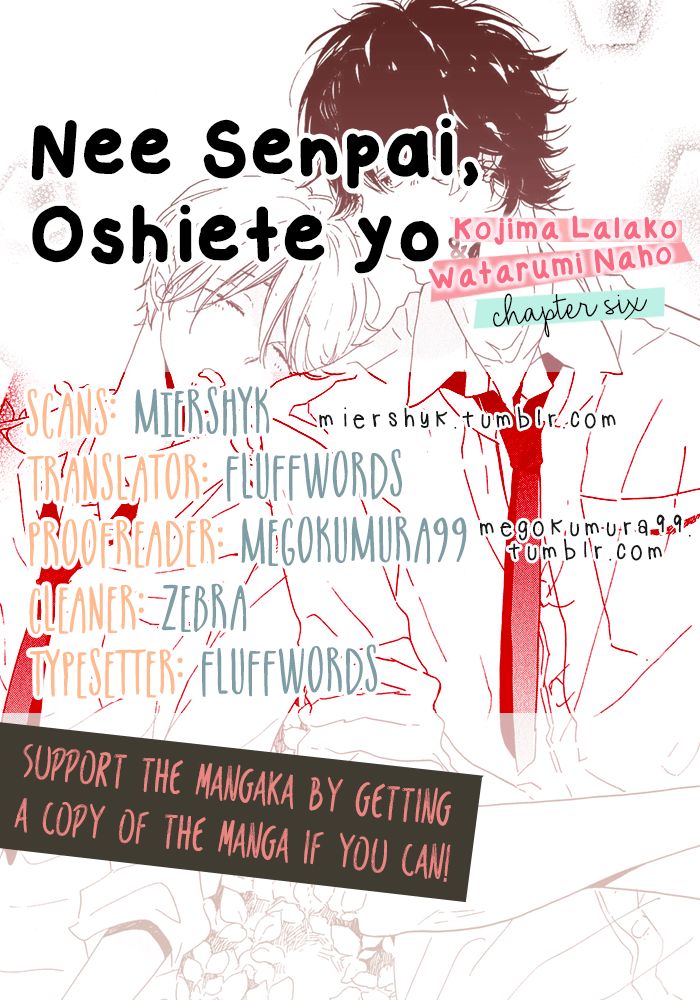 Nee Senpai,
Oshiete yo
Kojima Lalako
&
Watarumi Naho
chapter six
SCANS: MIERSHYK miershyk.tumblr.com
TRANSLATOR: FLUFFWORDS
PROOFREADER: MEGOKUMURA99 megokumura99.
tumblr.com
CLEANER: ZEBRA
TYPESETTER: FLUFFWORDS
SUPPORT THE MANGAKA BY GETTING
A COPY OF THE MANGA IF YOU CAN!